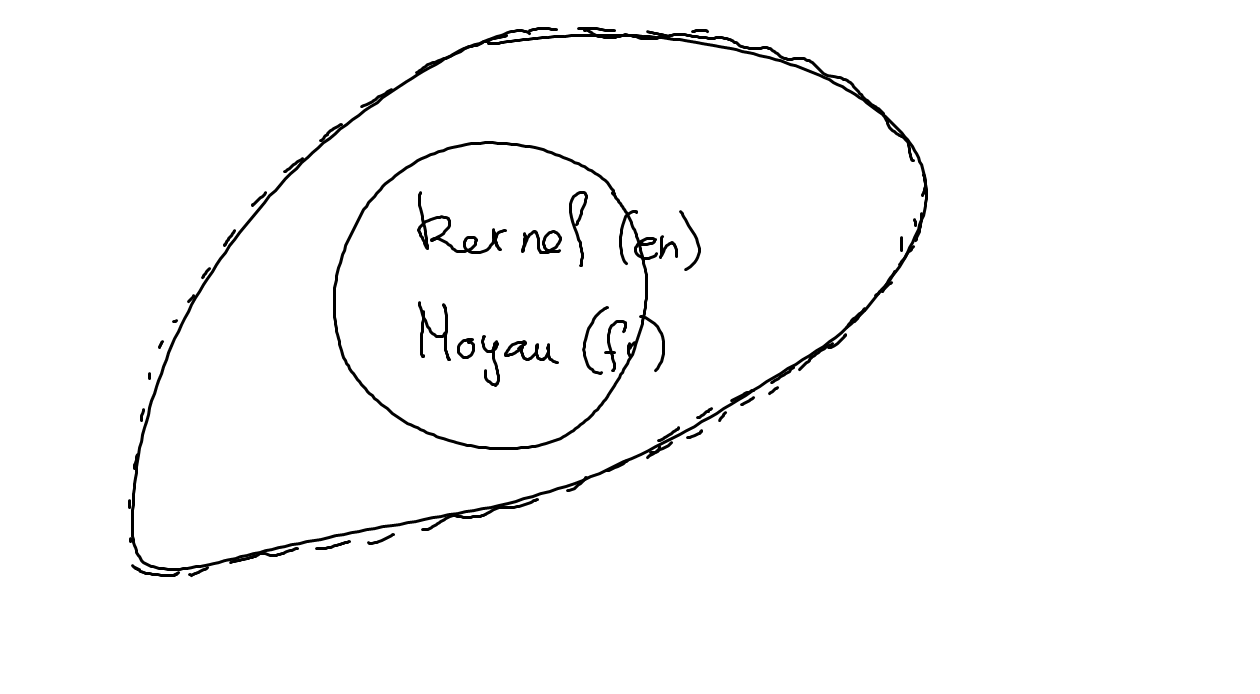 kernel (en)
Noyau (fr)